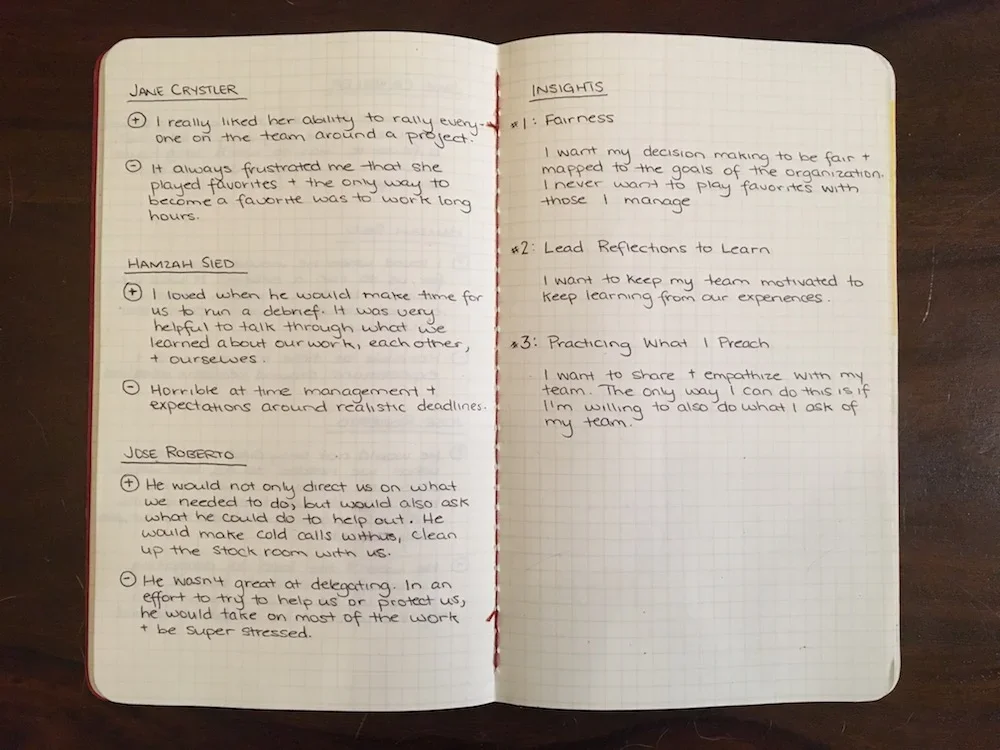 JANE CRYSTLER
⊕ I really liked her ability to rally every-
one on the team around a project.
⊖ It always frustrated me that she
played favorites + the only way to
become a favorite was to work long
hours.
HAMZAH SIED
⊕ I loved when he would make time for
us to run a debrief. It was very
helpful to talk through what we
learned about our work, each other,
+ ourselves.
⊖ Horrible at time management +
expectations around realistic deadlines.
JOSE ROBERTO
⊕ He would not only direct us on what
we needed to do, but would also ask
what he could do to help out. He
would make cold calls with us, clean
up the stock room with us.
⊖ He wasn't great at delegating. In an
effort to try to help us or protect us,
he would take on most of the work
+ be super stressed.
INSIGHTS
#1: Fairness
I want my decision making to be fair +
mapped to the goals of the organization.
I never want to play favorites with
those I manage
#2: Lead Reflections to Learn
I want to keep my team motivated to
keep learning from our experiences.
#3: Practicing What I Preach
I want to share + empathize with my
team. The only way I can do this is if
I'm willing to also do what I ask of
my team.